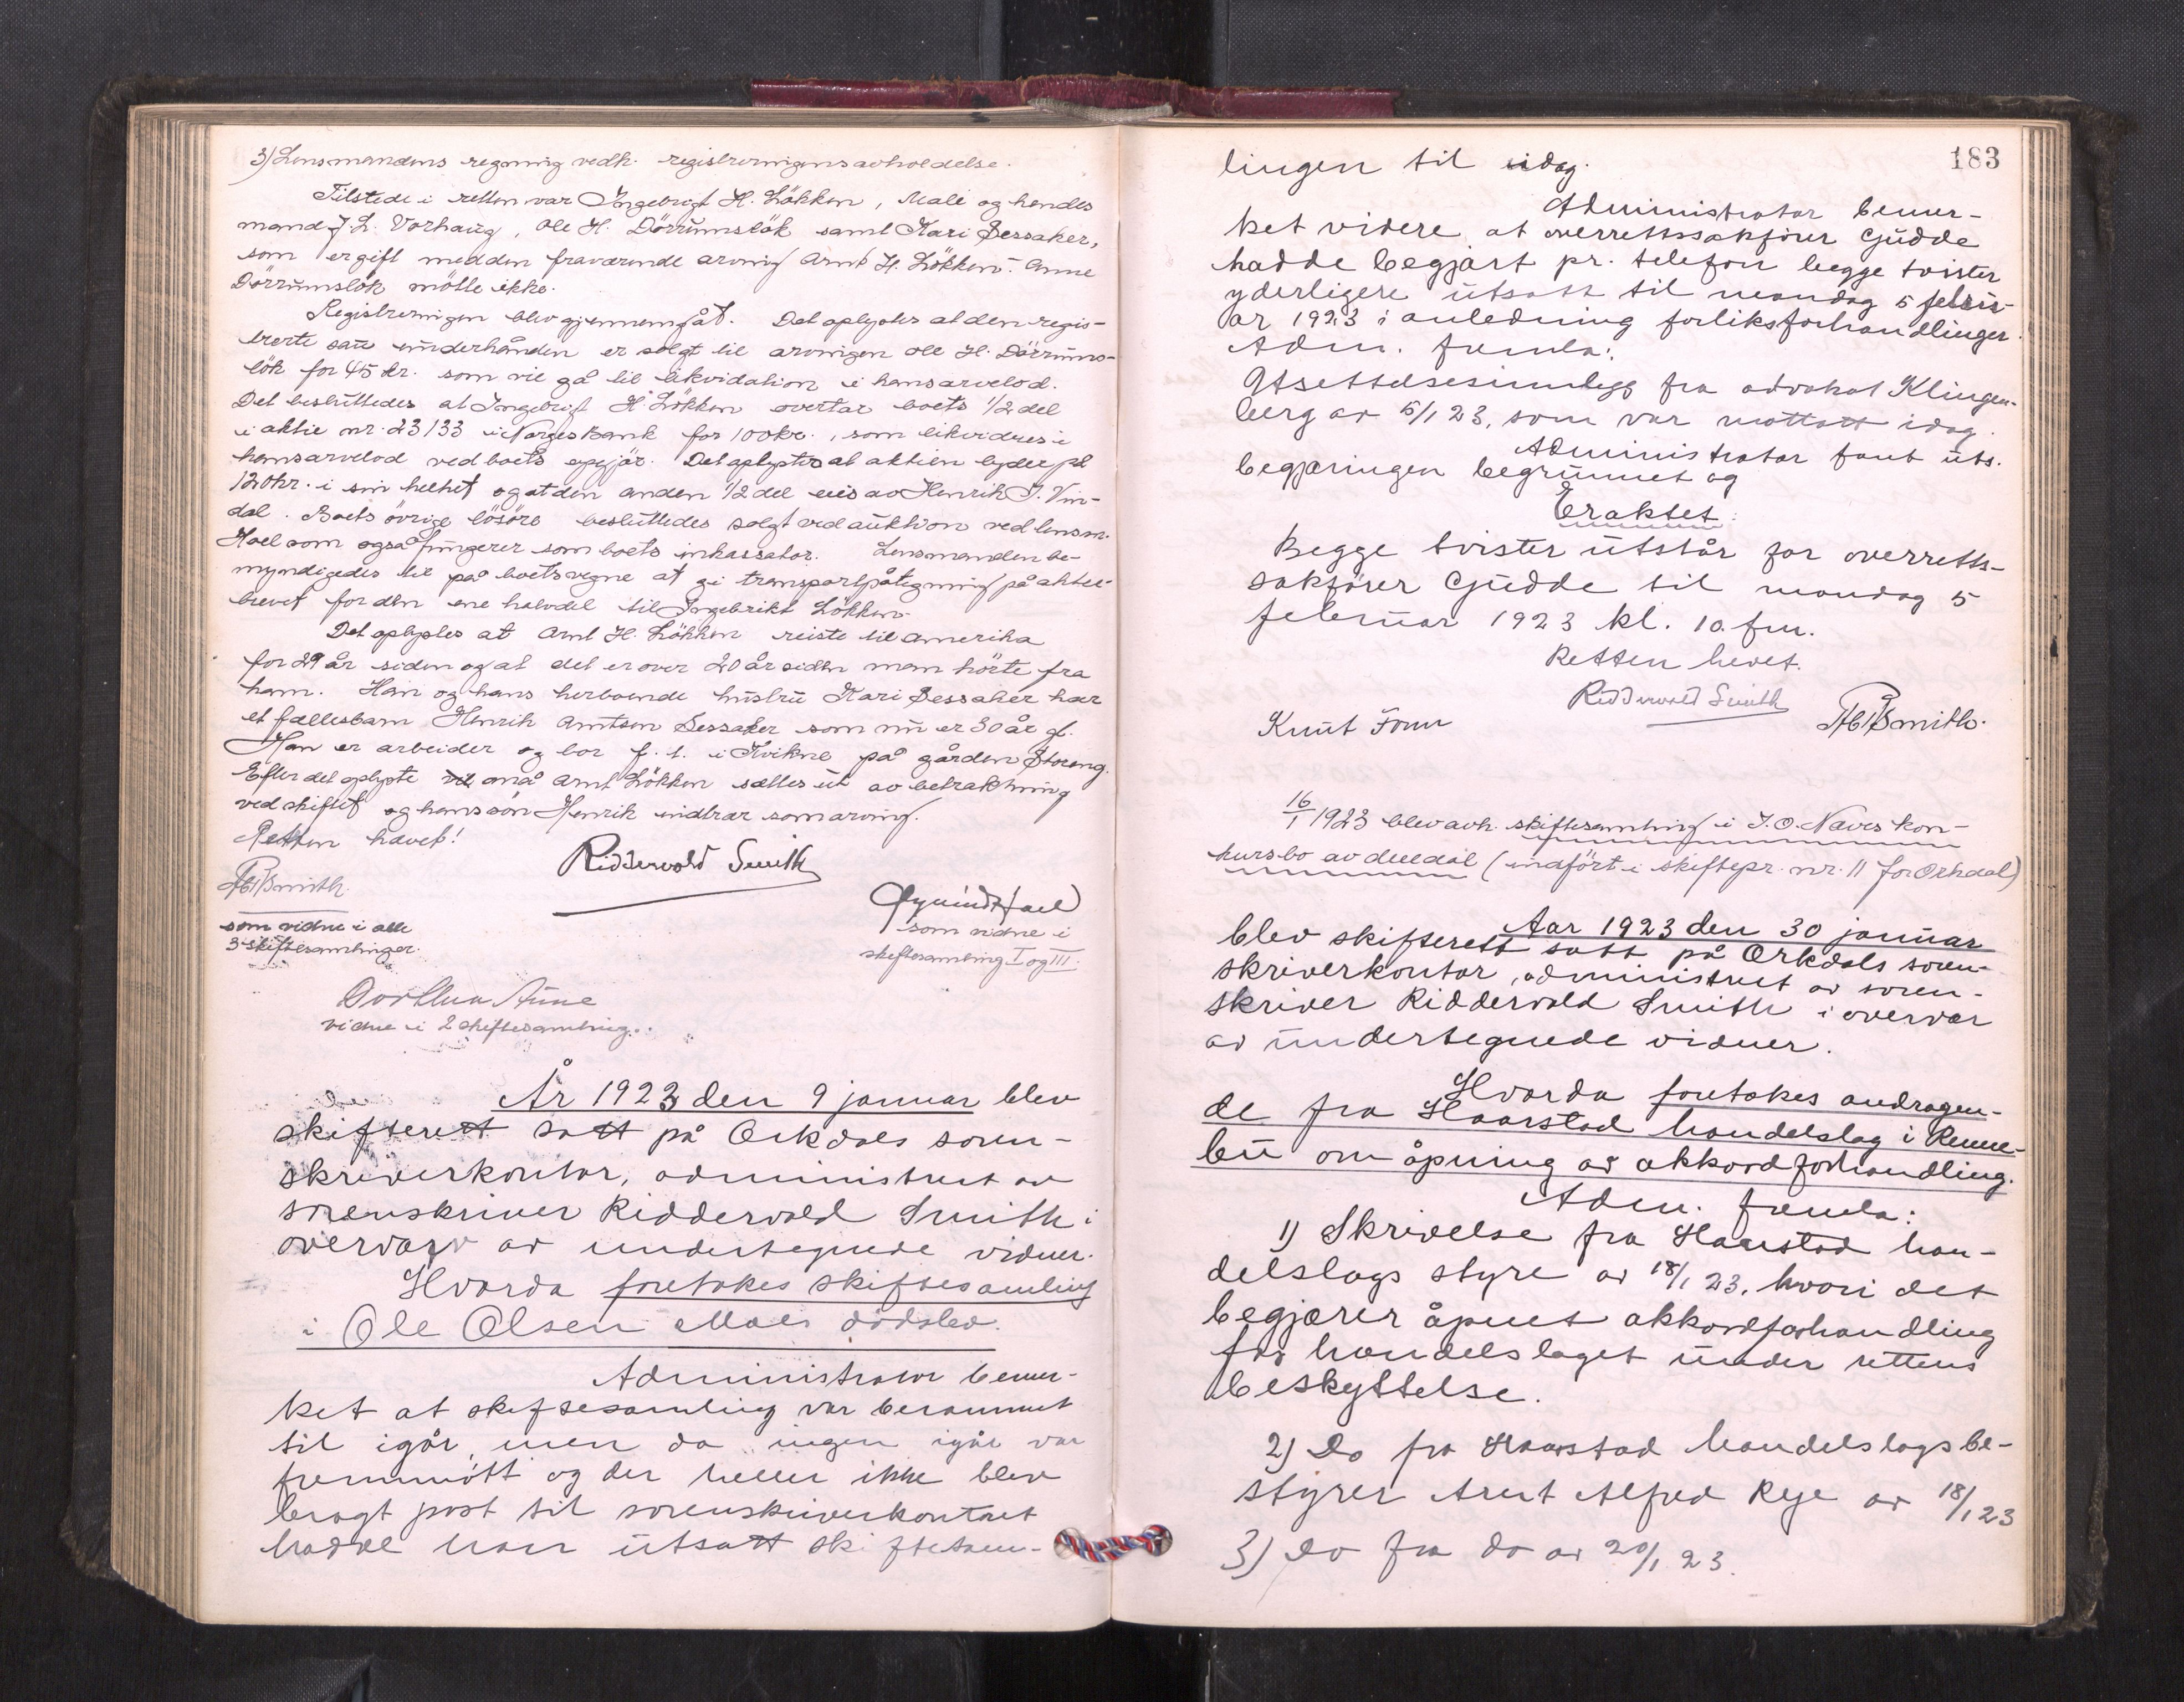 3) Lensmandens regning vedk. registreringens avholdelse.
Tilstede i retten var Ingebrigt H. Lökken, Mali og hendes
mand J. L. Vorhaug, Ole H. Dörrumslök samt Kari Bessaker,
som er gift med den fraværende arving Arnt H. Lökken. Anne
Dörrumslök mötte ikke.
Registreringen blev gjennemgåt. Det oplystes at den regis-
trerte sau underhånden er solgt til arvingen Ole H. Dörrums-
lök for 45 kr. som vil gå til likvidation i hans arvelod.
Det besluttedes at Ingebrigt H. Lökken overtar boets 1/2 del
i aktie nr. 23133 i Norges Bank for 100 kr., som likvideres i
hans arvelod ved boets opgjör. Det oplystes at aktien lyder på
120 kr. i sin helhet og at den anden 1/2 del eies av Henrik J. Vin-
dal. Boets övrige lösöre besluttedes solgt ved auktion ved lensm.
Hoel som også fungerer som boets inkassator. Lensmanden be-
myndigedes til på boets vegne at gi transportpåtegning på aktie-
brevet for den ene halvdel til Ingebrikt Lökken.
Det oplystes at Arnt H. Lökken reiste til Amerika
for 29 år siden og at det er over 20 år siden man hörte fra
ham. Han og hans herboende hustru Kari Bessaker har
et fællesbarn Henrik Arntsen Bessaker som nu er 30 år gl.
Han er arbeider og bor f. t. i Kvikne på gården Storeng.
Efter det oplyste må Arnt Lökken sættes ut av betraktning
ved skiftet og hans sön Henrik indtrær som arving.
Retten hævet!
Ridderwold Smith
Smith.
som vidne i alle
3 skiftesamlinger.
Øyvind Hoel
som vidne i
skiftesamling I og III.
Dorthea Aune
vidne i 2 skiftesamling.
År 1923 den 9 januar blev
skifterett satt på Orkdals soren-
skriverkontor, administrert av
sorenskriver Ridderwold Smith i
overvær av undertegnede vidner.
Hvorda foretokes skiftesamling
i Ole Olsen Moes dödsbo.
Administrator bemer-
ket at skiftesamling var berammet
til igår, men da ingen igår var
fremmött og der heller ikke blev
bragt post til sorenskriverkontoret
hadde han utsatt skiftesam-
183
lingen til idag.
Administrator bemer-
ket videre at overrettssakförer Gudde
hadde begjært pr. telefon begge tvister
yderligere utsatt til mandag 5 febru-
ar 1923 i anledning forliksforhandlinger.
Adm. fremla:
Utsettelsesinnlegg fra advokat Klingen-
berg av 5/1 23, som var mottatt idag.
Administrator fant uts.
begjæringen begrunnet og
Eraktet:
Begge tvister utstår for overretts-
sakförer Gudde til mandag 5
februar 1923 kl. 10 fm.
Retten hevet.
Ridderwold Smith
Knut Fonn
Smith.
16/1 1923 blev avh. skiftesamling i J. O. Naves kon-
kursbo av deldal (indfört i skiftepr. nr. 11 for Orkdal)
Aar 1923 den 30 januar
blev skifterett satt på Orkdals soren-
skriverkontor, administrert av soren-
skriver Ridderwold Smith i overvær
av undertegnede vidner.
Hvorda foretokes andragen-
de fra Haarstad handelslag i Renne-
bu om åpning av akkordforhandling.
Adm. fremla:
1) Skrivelse fra Haarstad han-
delslags styre av 18/1 23, hvori det
begjærer åpnet akkordforhandling
for handelslaget under rettens
beskyttelse.
2) Do fra Haarstad handelslags be-
styrer Arnt Alfred Rye av 18/1 23
3) Do fra do av 20/1 23.